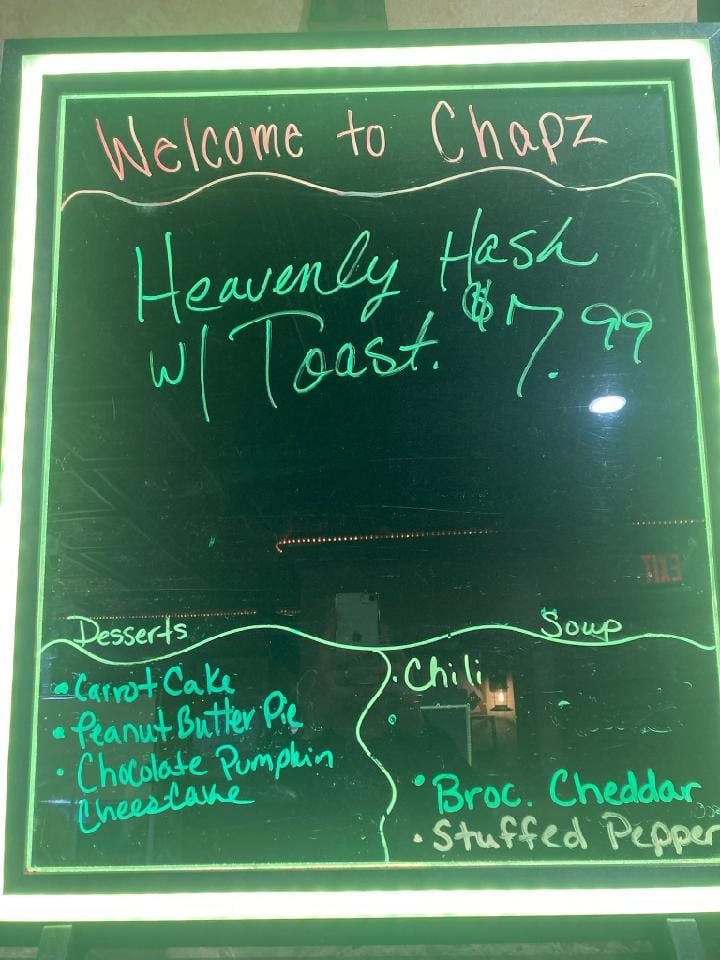 Welcome to Chapz
Heavenly Hash
w/ Toast. $7.99
EXIT
Desserts
• Carrot Cake
• Peanut Butter Pie
• Chocolate Pumpkin
Cheesecake
Soup
• Chili
• Broc. Cheddar
• Stuffed Pepper